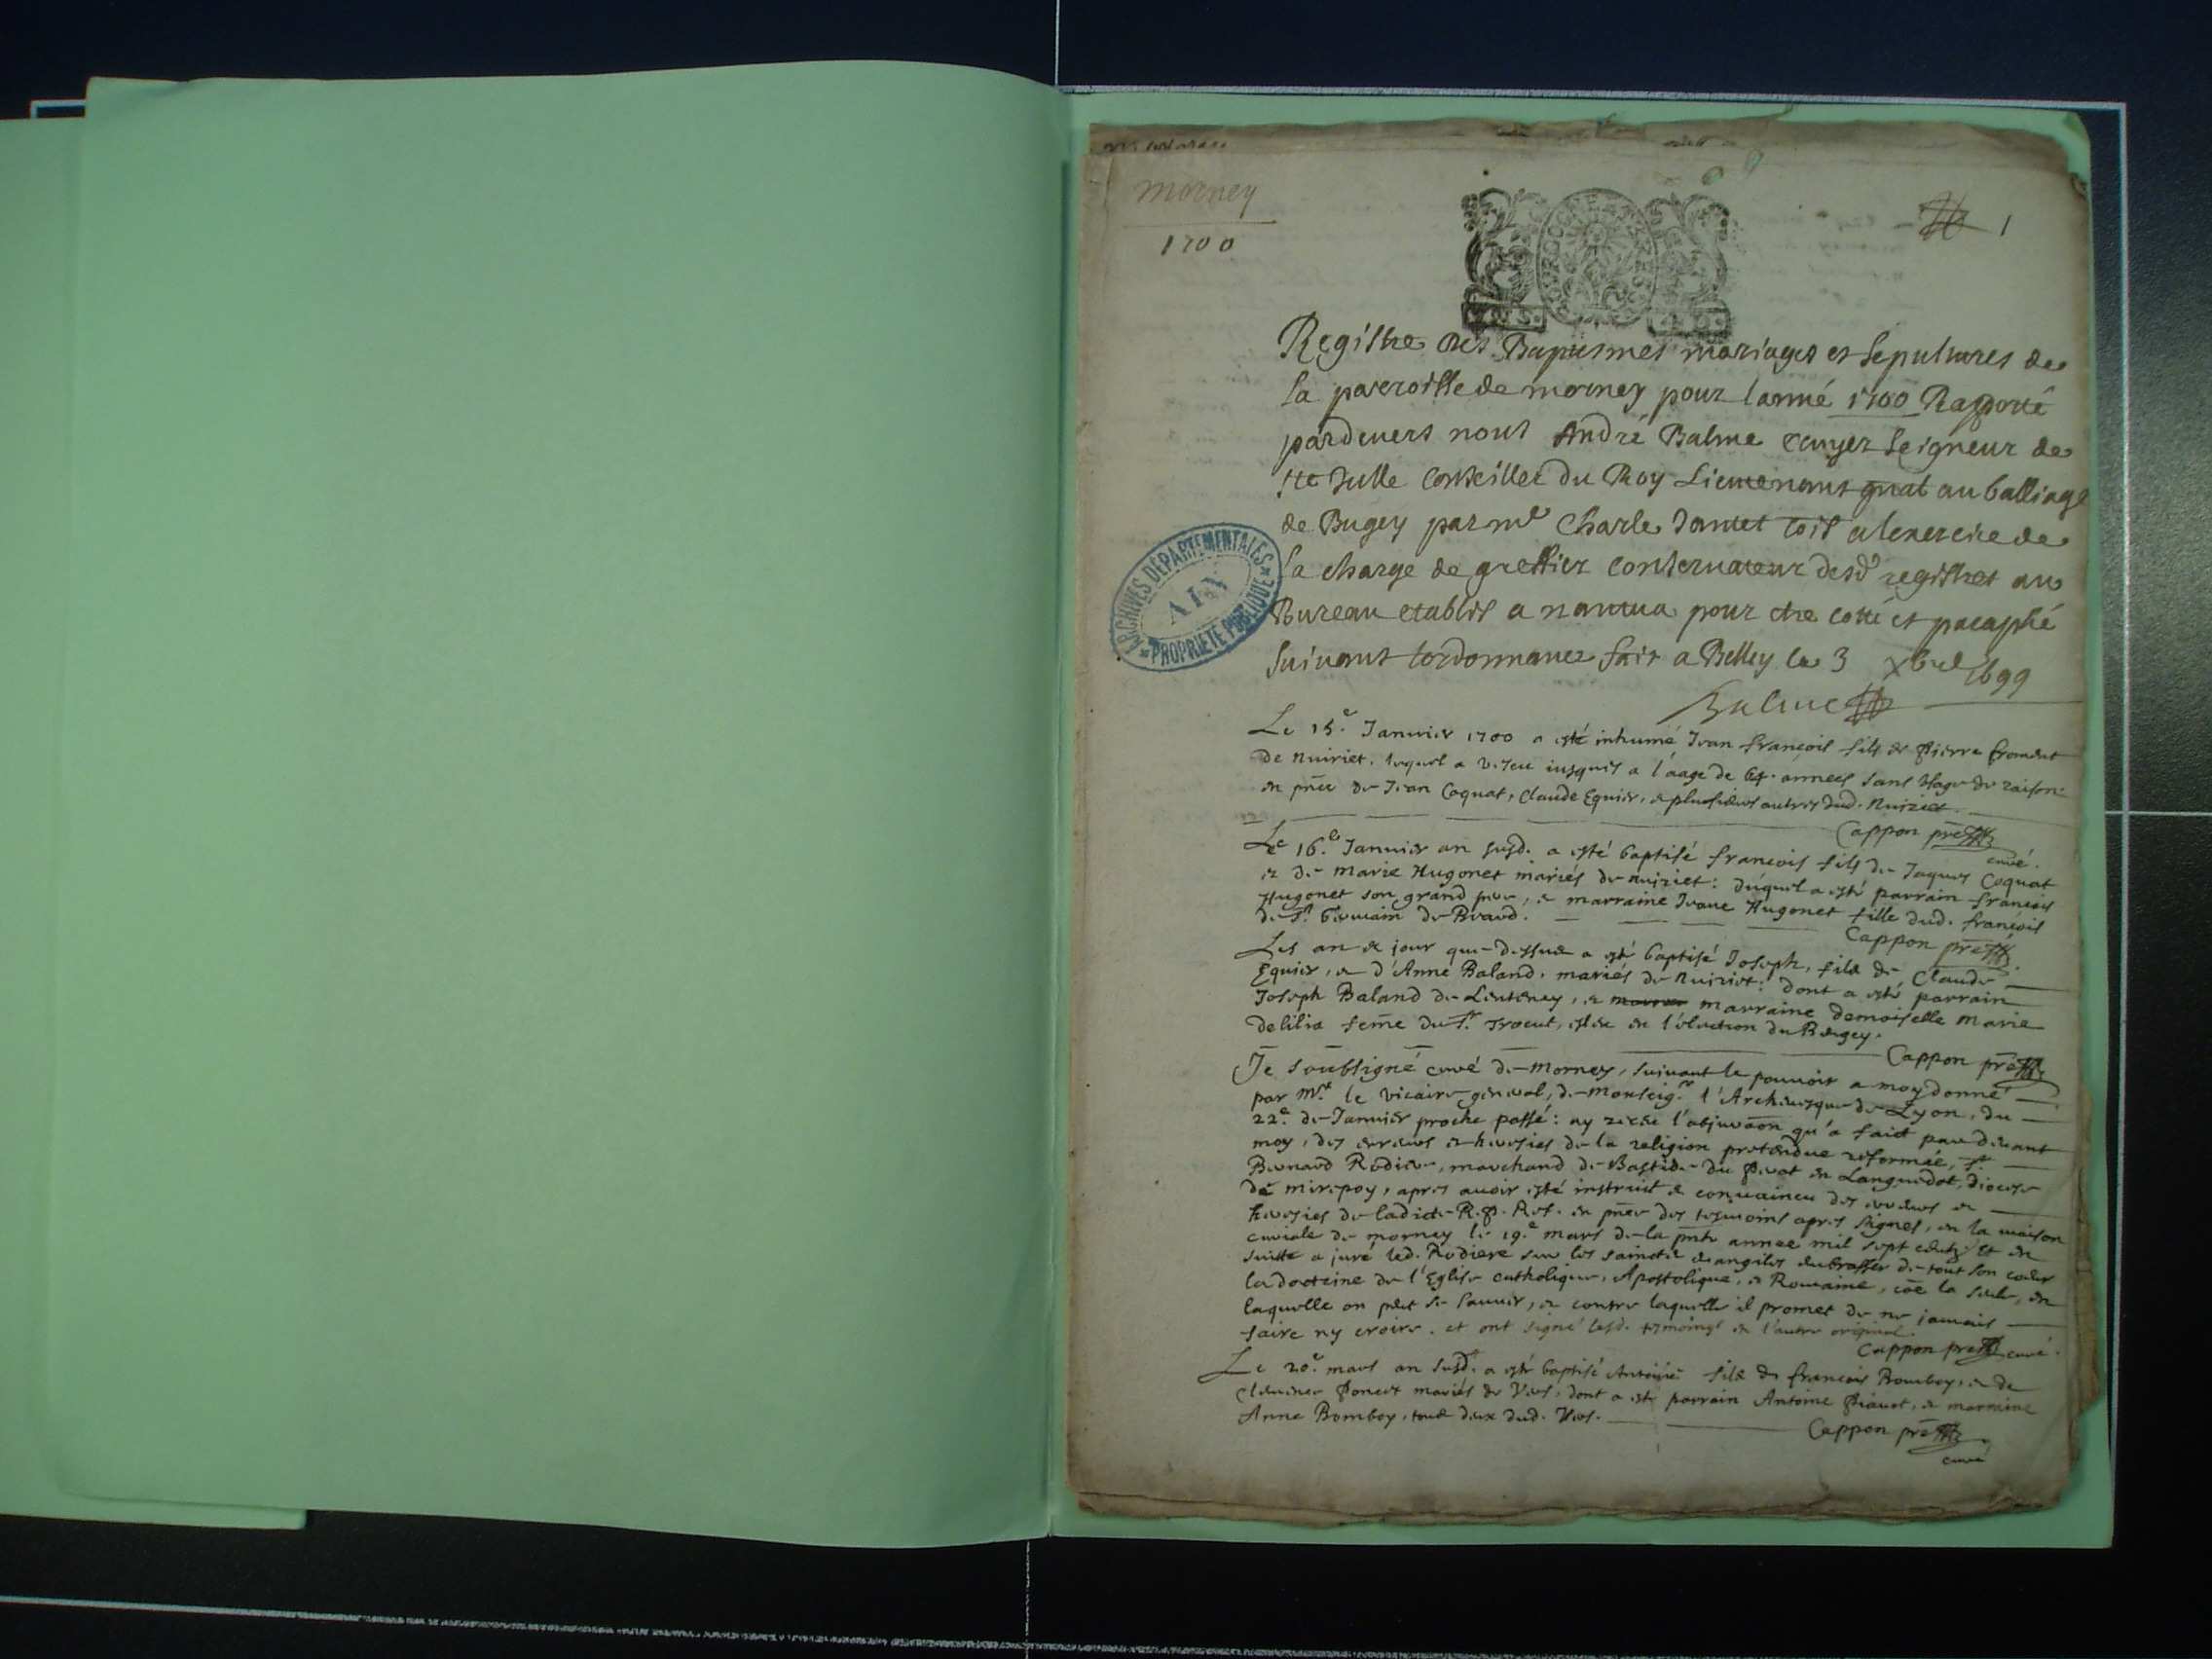 morney
1700
1
Registre des Baptismes mariages et sepultures de
la parroisse de morney pour lanné 1700 Rapporté
pardevers nous André Balme ecuyer seigneur de
Ste Julle conseiller du Roy Lieutenant gnal au balliage
de Bugey par me Charle Jantet commis a lexercice de
la charge de greffier conservateur desd registres au
Bureau etablis a nantua pour etre cotté et paraphé
suivant lordonnance fait a Belley le 3 xbre 1699
Balme
ARCHIVES DEPARTEMENTALES
AIN
PROPRIETE PUBLIQUE
Le 15e Janvier 1700 a esté inhumé Jean françois fils de Pierre
de nuiriet, lequel a vescu jusques a l'aage de 64 années sans usage de raison
en pnce de Jean Coquat, Claude Equier, et plusieurs autres dud. Nuiriet.
Cappon pre
curé.
Le 16e Janvier an susd. a esté baptisé francois fils de Jaques Coquat
et de marie Hugonet mariés de nuiriet: duquel a esté parrain francois
Hugonet son grand pere, et marraine Jeane Hugonet fille dud. françois
de St Germain de Beard.
Cappon pre
Les an et jour que dessus a esté baptisé Joseph, fils de Claude
Equier, et d'Anne Baland, mariés de Nuiriet: dont a esté parrain
Joseph Baland de Lentenay, et marraine demoiselle Marie
Delilia feme du Sr. Trocut, esleu en l'election du Bugey.
Cappon pre
Je soubsigné curé de Morney, suivant le pouvoir a moy donné
par Mre. le vicaire general, de Monseigr. l'Archevesque de Lyon, du
22e. de Janvier proche passé: ay receu l'abjuraon qu'a faict par devant
moy, des erreurs et heresies de la religion pretendue reformée, Sr.
Bernard Rodiere, marchand de Bastide du Peyrat en Languedot, diocese
de mirepoy, apres avoir esté instruict et convaincu des erreurs et
heresies de ladicte R.P.Ref. en pnce des tesmoins apres signes, en la maison
curiale de morney le 19e mars de la pnte annee mil sept centz. Et en
suitte a juré led. Rodiere sur les saincts evangiles embrasser de tout son coeur
la doctrine de l'Eglise catholique, Apostolique, et Romaine, coe la seule, en
laquelle on peut se sauver, et contre laquelle il promet de ne jamais
faire ny croire. et ont signé lesd. tesmoings en l'autre original.
Cappon pre curé.
Le 20e. mars an susd. a esté baptisé Antoine fils de francois Bomboy, et de
Clemence Poncet mariés de Vers, dont a esté parrain Antoine, et marraine
Anne Bomboy, tous deux dud. Vers.
Cappon pre
curé